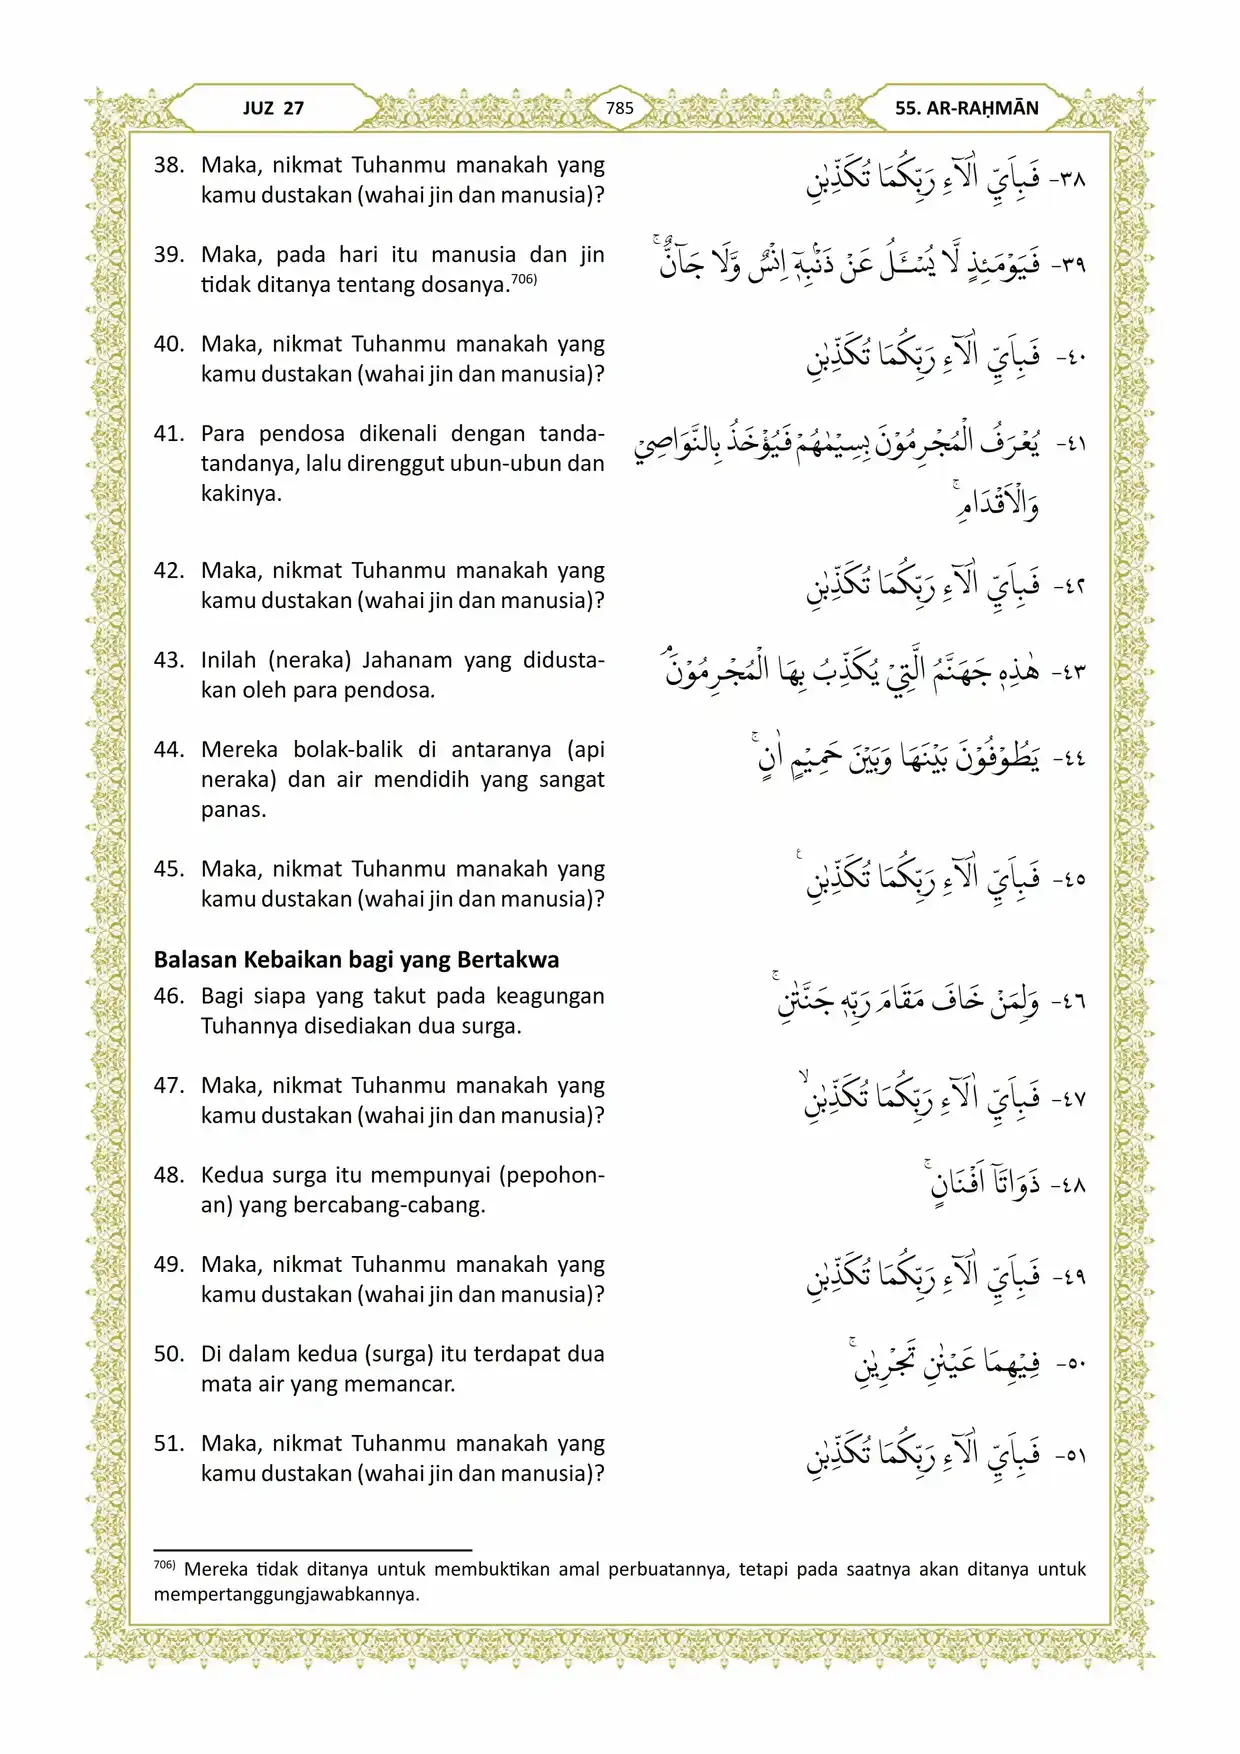 JUZ 27
785
55. AR-RAḤMĀN
38. Maka, nikmat Tuhanmu manakah yang
kamu dustakan (wahai jin dan manusia)?
٣٨- فَبِاَيِّ اٰلَاۤءِ رَبِّكُمَا تُكَذِّبٰنِ
39. Maka, pada hari itu manusia dan jin
tidak ditanya tentang dosanya.706)
٣٩- فَيَوْمَىِٕذٍ لَّا يُسْـَٔلُ عَنْ ذَنْۢبِهٖٓ اِنْسٌ وَّلَا جَاۤنٌّۚ
40. Maka, nikmat Tuhanmu manakah yang
kamu dustakan (wahai jin dan manusia)?
٤٠- فَبِاَيِّ اٰلَاۤءِ رَبِّكُمَا تُكَذِّبٰنِ
41. Para pendosa dikenali dengan tanda-
tandanya, lalu direnggut ubun-ubun dan
kakinya.
٤١- يُعْرَفُ الْمُجْرِمُوْنَ بِسِيْمٰهُمْ فَيُؤْخَذُ بِالنَّوَاصِيْ
وَالْاَقْدَامِۚ
42. Maka, nikmat Tuhanmu manakah yang
kamu dustakan (wahai jin dan manusia)?
٤٢- فَبِاَيِّ اٰلَاۤءِ رَبِّكُمَا تُكَذِّبٰنِ
43. Inilah (neraka) Jahanam yang didusta-
kan oleh para pendosa.
٤٣- هٰذِهٖ جَهَنَّمُ الَّتِيْ يُكَذِّبُ بِهَا الْمُجْرِمُوْنَۘ
44. Mereka bolak-balik di antaranya (api
neraka) dan air mendidih yang sangat
panas.
٤٤- يَطُوْفُوْنَ بَيْنَهَا وَبَيْنَ حَمِيْمٍ اٰنٍۚ
45. Maka, nikmat Tuhanmu manakah yang
kamu dustakan (wahai jin dan manusia)?
٤٥- فَبِاَيِّ اٰلَاۤءِ رَبِّكُمَا تُكَذِّبٰنِ ࣖ
Balasan Kebaikan bagi yang Bertakwa
46. Bagi siapa yang takut pada keagungan
Tuhannya disediakan dua surga.
٤٦- وَلِمَنْ خَافَ مَقَامَ رَبِّهٖ جَنَّتٰنِۚ
47. Maka, nikmat Tuhanmu manakah yang
kamu dustakan (wahai jin dan manusia)?
٤٧- فَبِاَيِّ اٰلَاۤءِ رَبِّكُمَا تُكَذِّبٰنِۙ
48. Kedua surga itu mempunyai (pepohon-
an) yang bercabang-cabang.
٤٨- ذَوَاتَآ اَفْنَانٍۚ
49. Maka, nikmat Tuhanmu manakah yang
kamu dustakan (wahai jin dan manusia)?
٤٩- فَبِاَيِّ اٰلَاۤءِ رَبِّكُمَا تُكَذِّبٰنِ
50. Di dalam kedua (surga) itu terdapat dua
mata air yang memancar.
٥٠- فِيْهِمَا عَيْنٰنِ تَجْرِيٰنِۚ
51. Maka, nikmat Tuhanmu manakah yang
kamu dustakan (wahai jin dan manusia)?
٥١- فَبِاَيِّ اٰلَاۤءِ رَبِّكُمَا تُكَذِّبٰنِ
706) Mereka tidak ditanya untuk membuktikan amal perbuatannya, tetapi pada saatnya akan ditanya untuk
mempertanggungjawabkannya.